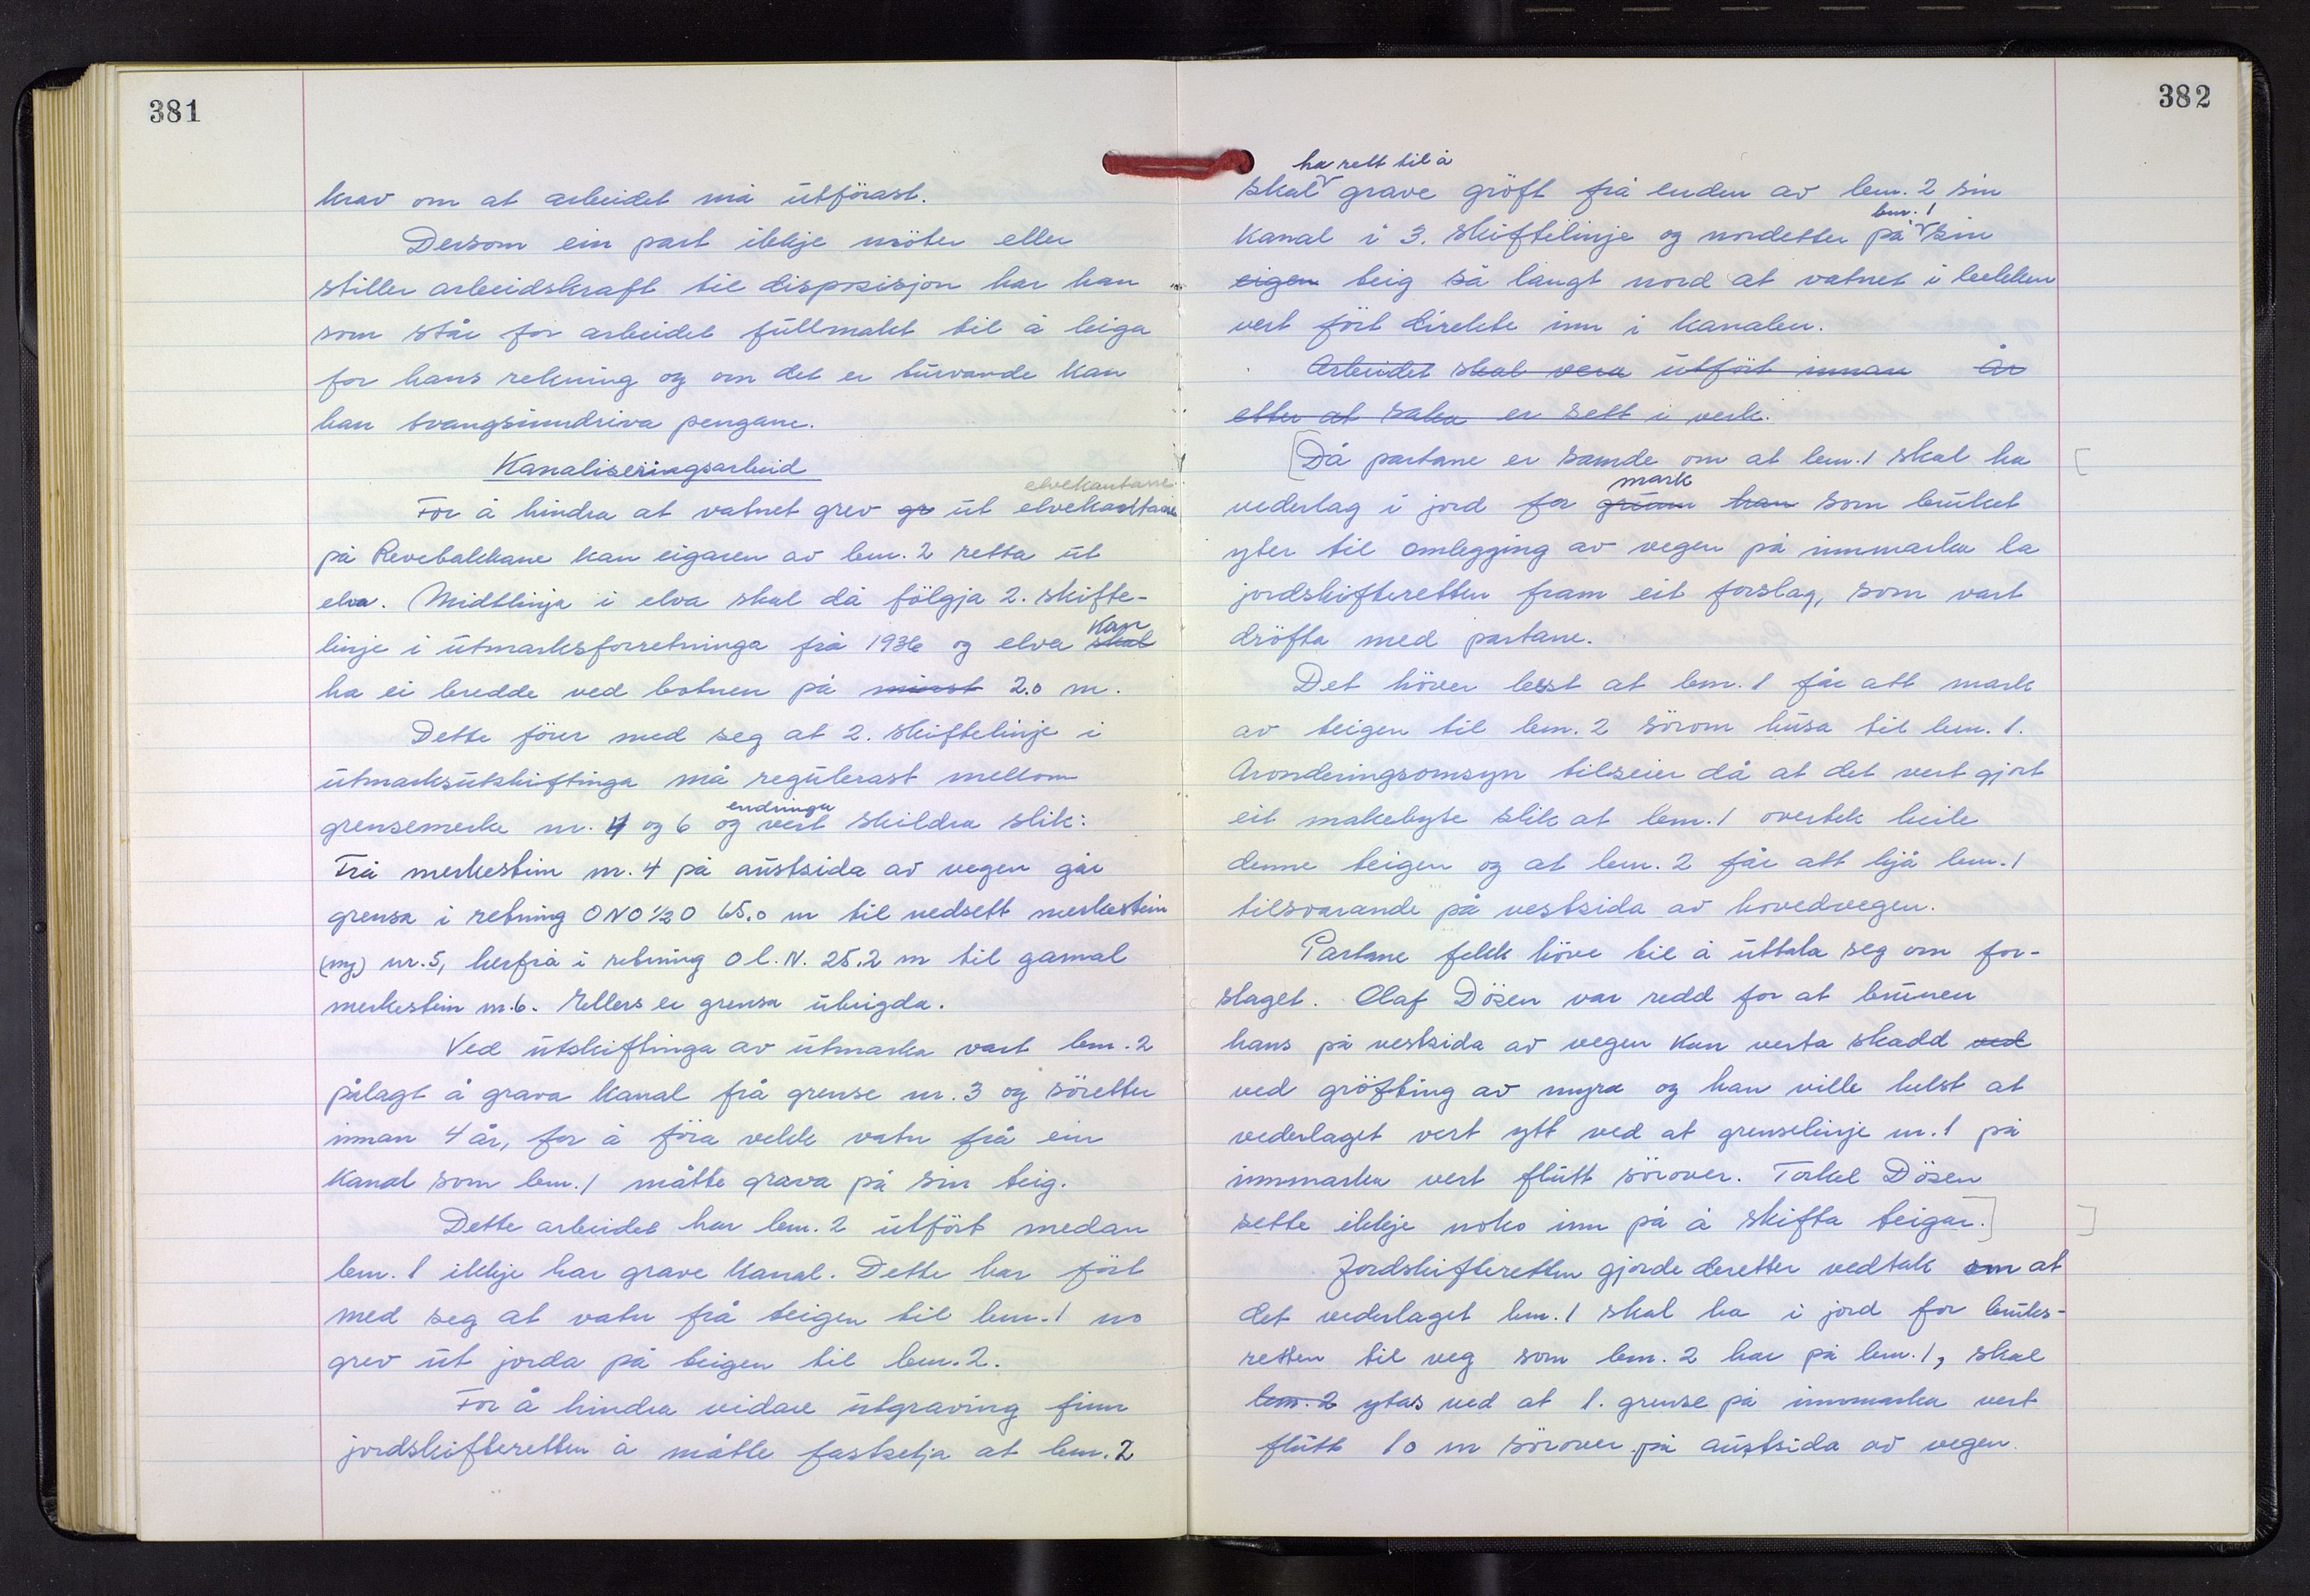 381
krav om at arbeidet må utförast.
Dersom ein part ikkje möter eller
stiller arbeidskraft til disposisjon har han
som står for arbeidet fullmakt til å leiga
for hans rekning og om det er turvande kan
han tvangsinndriva pengane.
Kanaliseringsarbeid
elvekantane
For å hindra at vatnet grev gr ut elvekantane
på Revebakkane kan eigaren av bnr. 2 retta ut
elva. Midtlinja i elva skal då fölgja 2. skifte-
kan
linje i utmarksforretninga frå 1936 og elva skal
ha ei bredde ved botnen på minst 2.0 m.
Dette förer med seg at 2. skiftelinje i
utmarksutskiftinga må regulerast mellom
endringa
grensemerke nr. 4 og 6 og vert skildra slik:
Frå merkestein nr. 4 på austsida av vegen går
grensa i retning ONO½O 65.0 m til nedsett merkestein
(ny) nr. 5, herfrå i retning O l. N. 25.2 m til gamal
merkestein nr. 6. Ellers er grensa ubrigda.
Ved utskiftinga av utmarka vart bnr. 2
pålagt å grava kanal frå grense nr. 3 og söretter
innan 4 år, for å föra vekk vatn frå ein
kanal som bnr. 1 måtte grava på sin teig.
Dette arbeidet har bnr. 2 utfört medan
bnr. 1 ikkje har grave kanal. Dette har fört
med seg at vatn frå teigen til bnr. 1 no
grev ut jorda på teigen til bnr. 2.
For å hindra vidare utgraving finn
jordskifteretten å måtte fastsetja at bnr. 2
382
ha rett til å
skal grave gröft frå enden av bnr. 2 sin
bnr. 1
kanal i 3. skiftelinje og nordetter på sin
eigen teig så langt nord at vatnet i bekken
vert fört direkte inn i kanalen.
Arbeidet skal vera utfört innan år
etter at saka er sett i verk.
[Då partane er samde om at bnr. 1 skal ha [
mark
vederlag i jord for grunn han som bruket
yter til omlegging av vegen på innmarka la
jordskifteretten fram eit forslag, som vart
dröfta med partane.
Det höver best at bnr. 1 får att mark
av teigen til bnr. 2 sörom husa til bnr. 1.
Aronderingsomsyn tilseier då at det vert gjort
eit makebyte slik at bnr. 1 overtek heile
denne teigen og at bnr. 2 får att hjå bnr. 1
tilsvarande på vestsida av hovedvegen.
Partane fekk höve til å uttala seg om for-
slaget. Olaf Dösen var redd for at brunnen
hans på vestsida av vegen kan verta skadd ved
ved gröfting av myra og han ville helst at
vederlaget vert ytt ved at grenselinje nr. 1 på
innmarka vert flutt sörover. Torkel Dösen
sette ikkje noko inn på å skifta teigar.] ]
Jordskifteretten gjorde deretter vedtak om at
det vederlaget bnr. 1 skal ha i jord for bruks-
retten til veg som bnr. 2 har på bnr. 1, skal
bnr. 2 ytas ved at 1. grense på innmarka vert
flutt 10 m sörover på austsida av vegen.